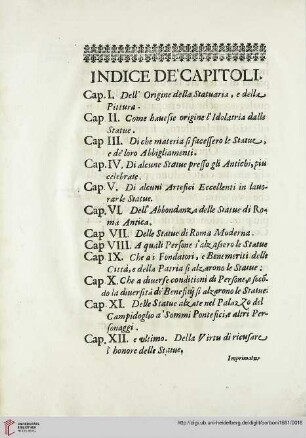 INDICE DE' CAPITOLI.
Cap. I. Dell' Origine della Statuaria, e della
Pittura.
Cap II. Come hauesse origine l'Idolatria dalle
Statue.
Cap III. Di che materia si facessero le Statue,
e de' loro Abbigliamenti.
Cap. IV. Di alcune Statue presso gli Antichi, piu
celebrate.
Cap. V. Di alcuni Artefici Eccellenti in lauo-
rar le Statue.
Cap. VI. Dell' Abbondanza delle Statue di Ro-
ma Antica.
Cap VII. Delle Statue di Roma Moderna.
Cap VIII. A quali Persone s'alzassero le Statue
Cap IX. Che a i Fondatori, e Benemeriti delle
Città, e della Patria si alzarono le Statue:
Cap X. Che a diuerse conditioni di Persone, secō-
do la diuersità di Benefitij si alzarono le Statue
Cap. XI. Delle Statue alzate nel Palazzo del
Campidoglio a' Sommi Pontefici, & altri Per-
sonaggi.
Cap, XII. e vltimo. Della Virtu di ricusare
l'honore delle Statue,
Imprimatur
UNIVERSITÄTS-
BIBLIOTHEK
HEIDELBERG